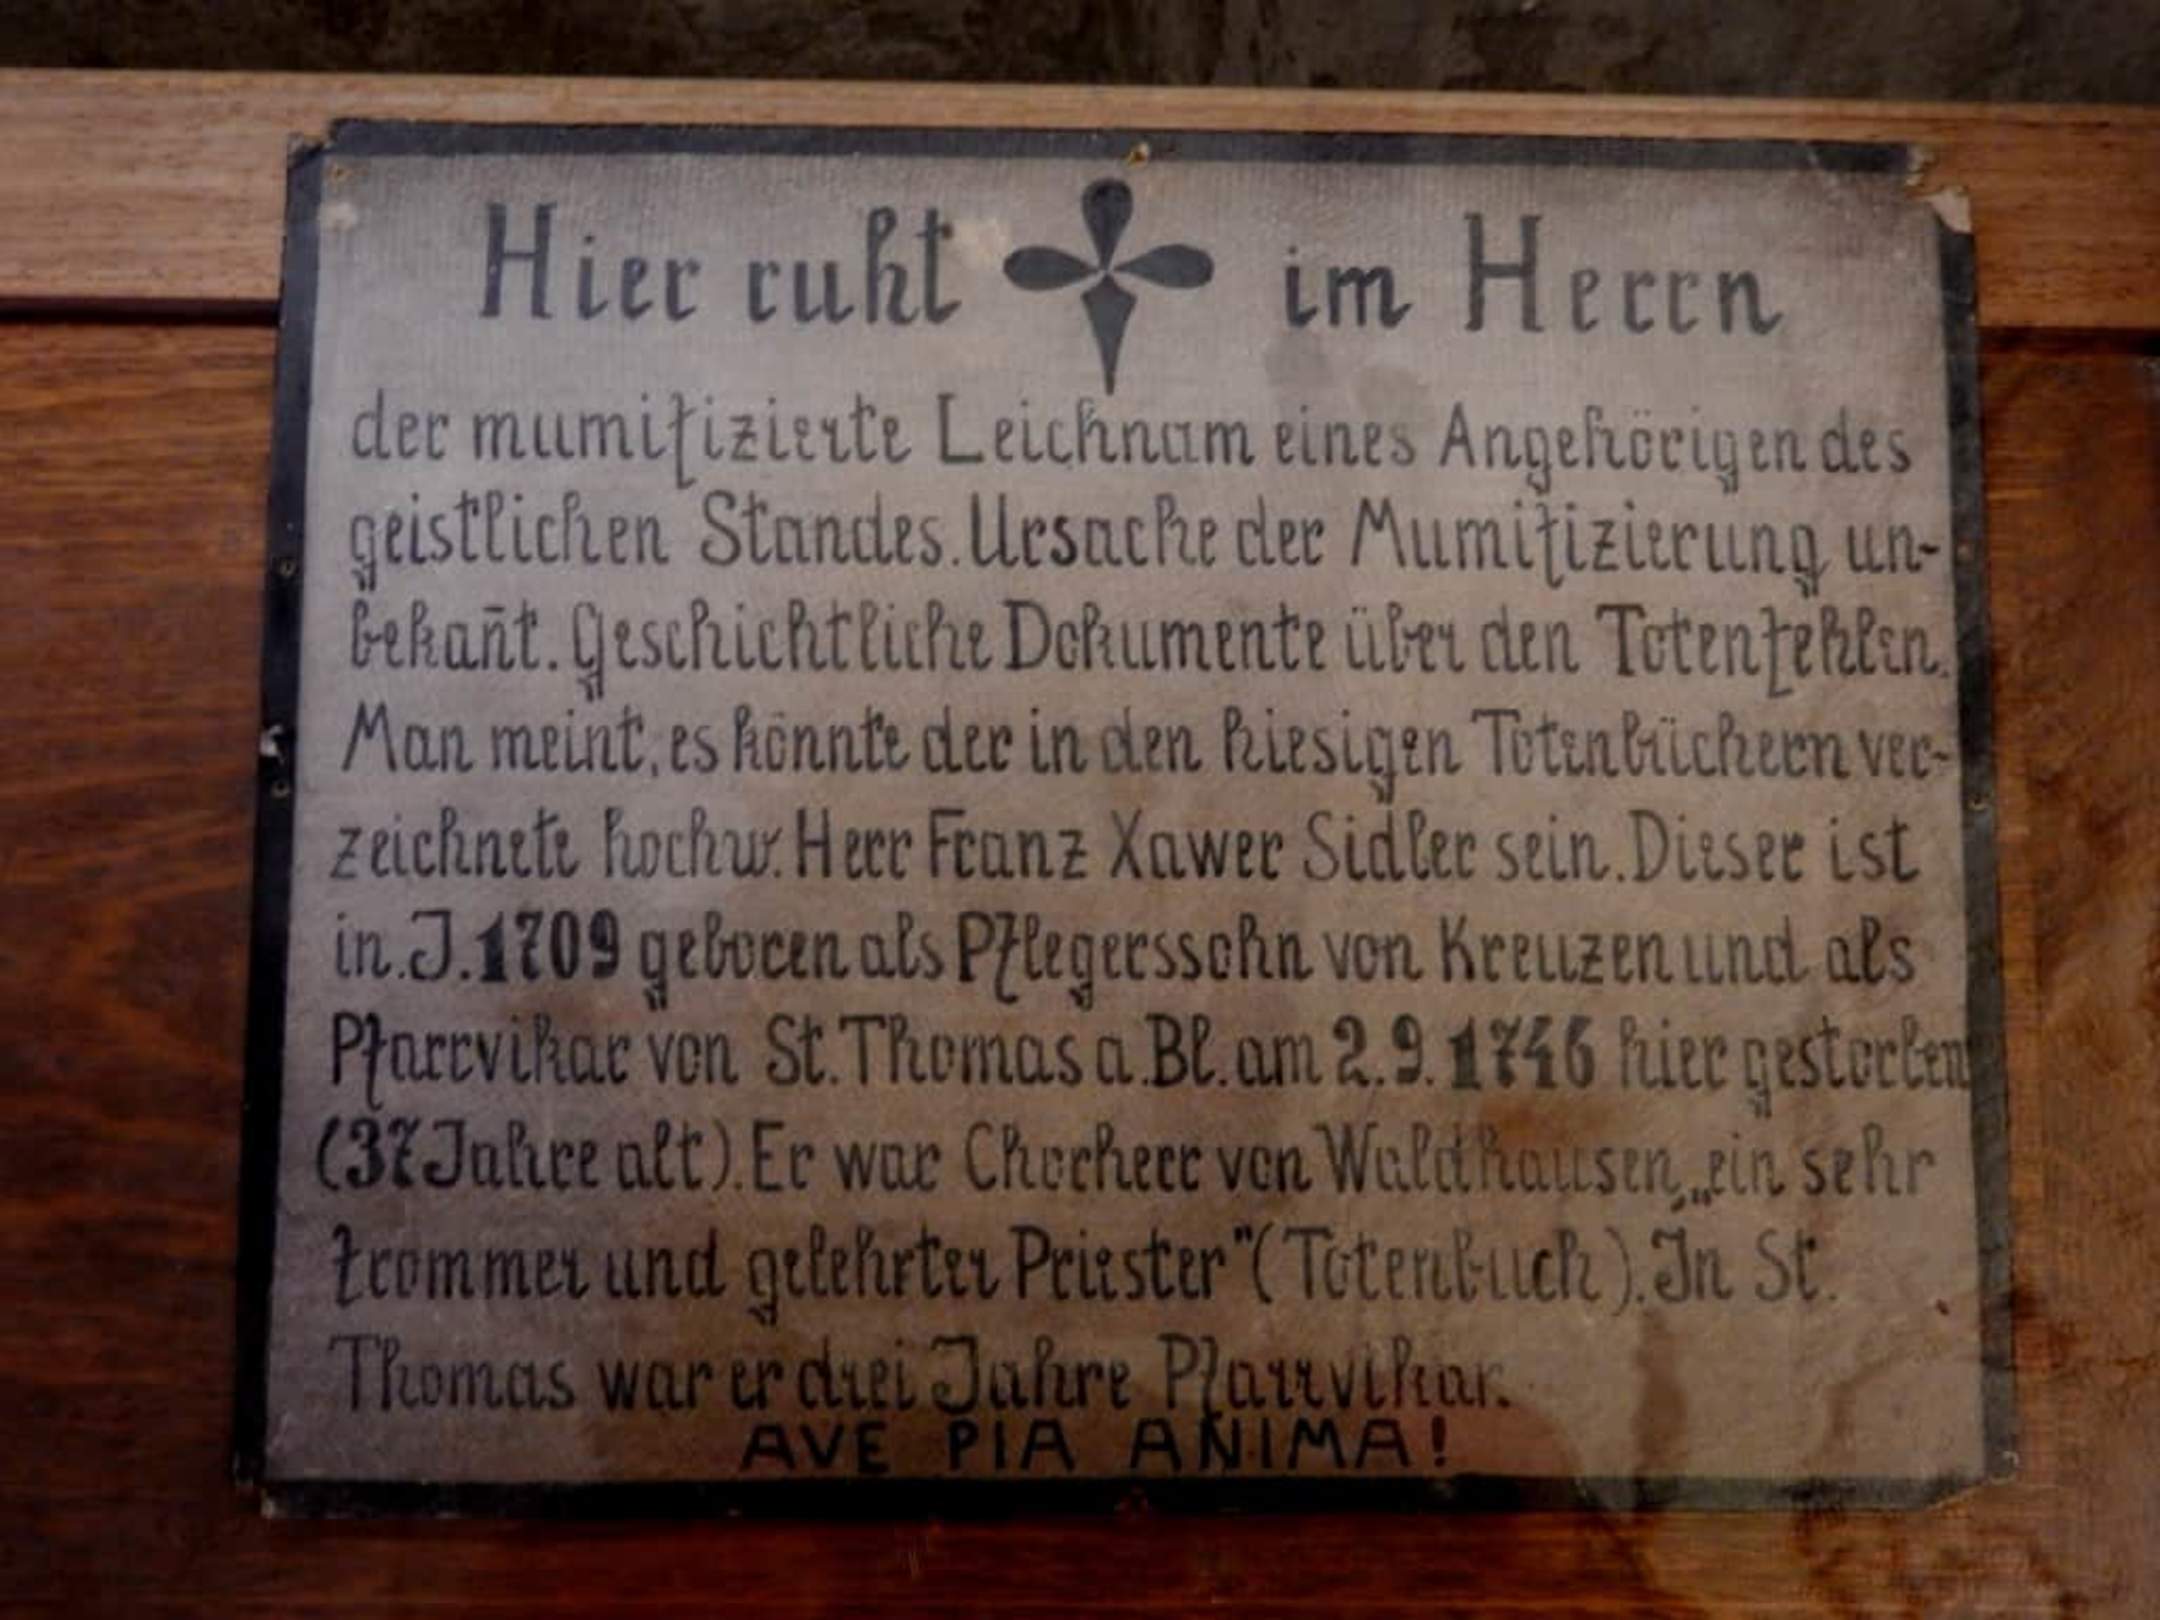 Hier ruht im Herrn
der mumifizierte Leichnam eines Angehörigen des
geistlichen Standes. Ursache der Mumifizierung un-
bekan̄t. Geschichtliche Dokumente über den Toten fehlen.
Man meint, es könnte der in den hiesigen Totenbüchern ver-
zeichnete hochw. Herr Franz Xawer Sidler sein. Dieser ist
in. J. 1709 geboren als Pflegerssohn von Kreuzen und als
Pfarrvikar von St. Thomas a. Bl. am 2. 9. 1746 hier gestorben
(37 Jahre alt). Er war Chorherr von Waldhausen, „ein sehr
frommer und gelehrter Priester" (Totenbuch). In St.
Thomas war er drei Jahre Pfarrvikar.
AVE PIA ANIMA!